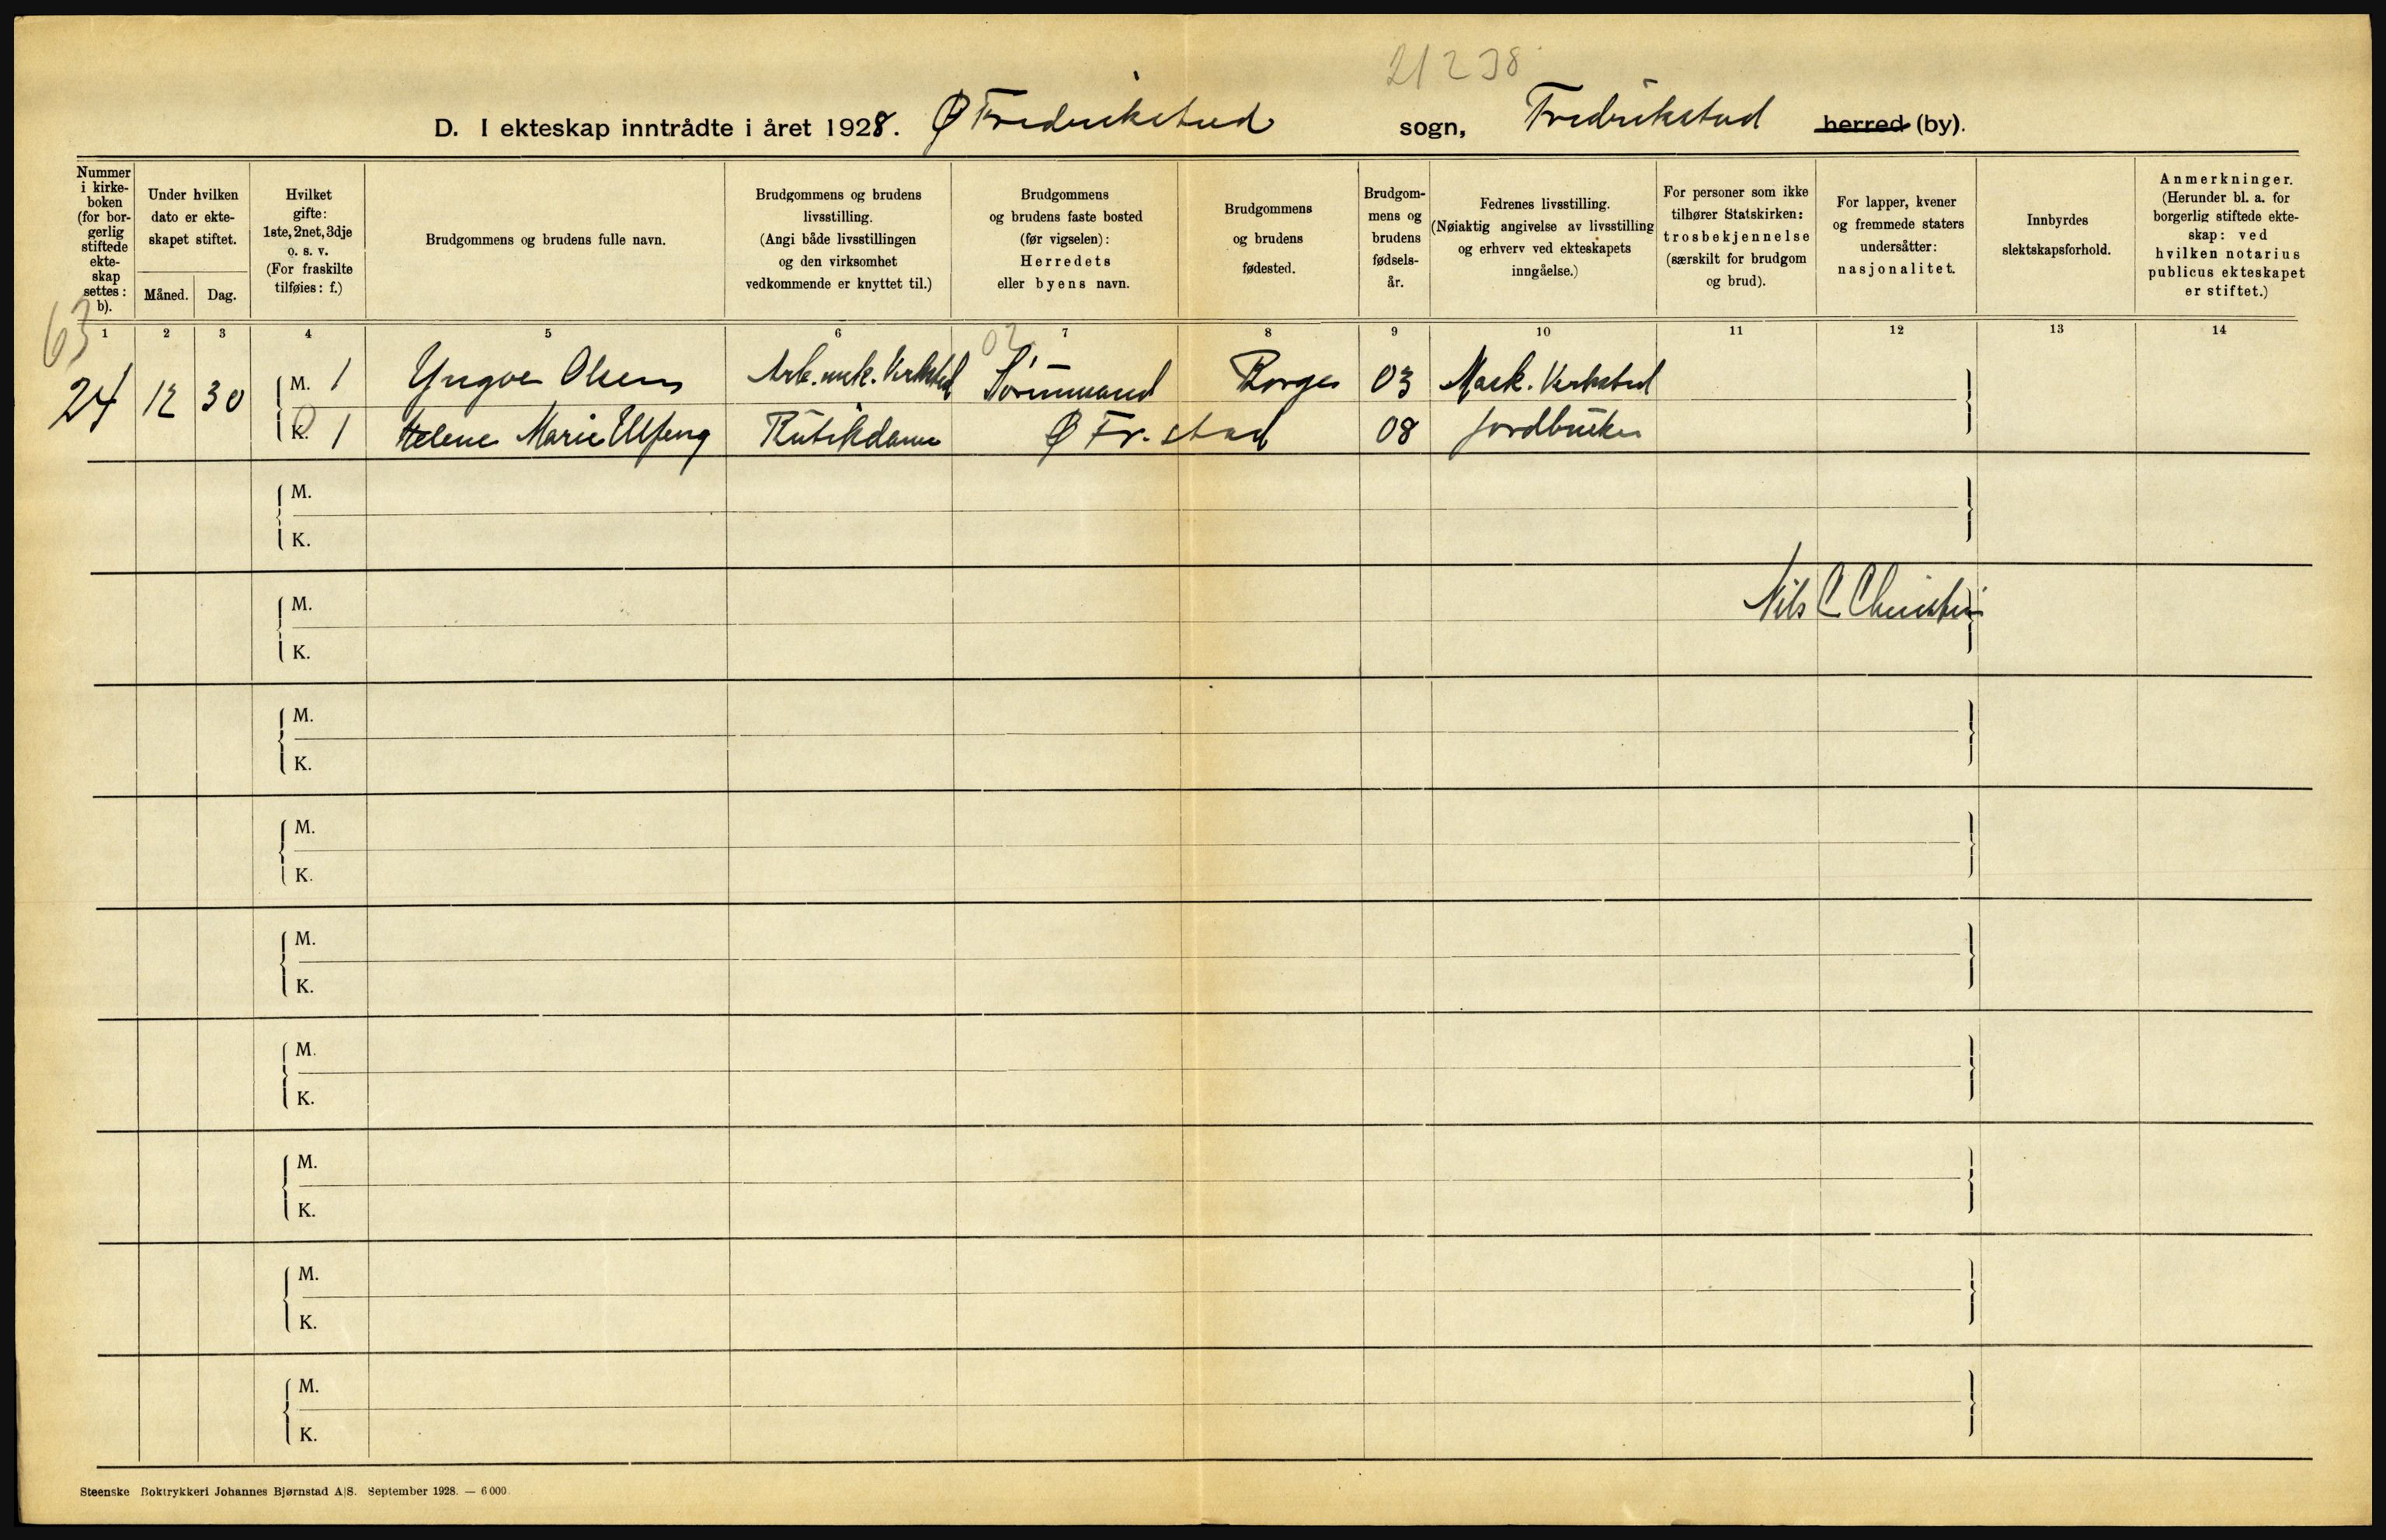 21238
D. I ekteskap inntrådte i året 1928. Ø Fredrikstad sogn, Fredrikstad herred (by).
Nummer i kirke-boken (for bor-gerlig stiftede ekte-skap settes: b).
Under hvilken dato er ekte-skapet stiftet.
Måned. Dag.
Hvilket gifte: 1ste, 2net, 3dje o. s. v. (For fraskilte tilføies: f.)
Brudgommens og brudens fulle navn.
Brudgommens og brudens livsstilling. (Angi både livsstillingen og den virksomhet vedkommende er knyttet til.)
Brudgommens og brudens faste bosted (før vigselen): Herredets eller byens navn.
Brudgommens og brudens fødested.
Brudgom-mens og brudens fødsels-år.
Fedrenes livsstilling. (Nøiaktig angivelse av livsstilling og erhverv ved ekteskapets inngåelse.)
For personer som ikke tilhører Statskirken: trosbekjennelse (særskilt for brudgom og brud).
For lapper, kvener og fremmede staters undersåtter: nasjonalitet.
Innbyrdes slektskapsforhold.
Anmerkninger. (Herunder bl. a. for borgerlig stiftede ekte-skap: ved hvilken notarius publicus ekteskapet er stiftet.)
63
1 2 3 4 5 6 7 8 9 10 11 12 13 14
02
24 12 30 M. 1 Yngve Olsen Arb. mek. Verksted Borge 03 Mask. Verksted
K. 1 Helene Marie Butikdame Ø Fr.stad 08 Jordbruker
M.
K.
M. Nils C Christin
K.
M.
K.
M.
K.
M.
K.
M.
K.
M.
K.
M.
K.
M.
K.
Steenske Boktrykkeri Johannes Bjørnstad A|S. September 1928. — 6000.